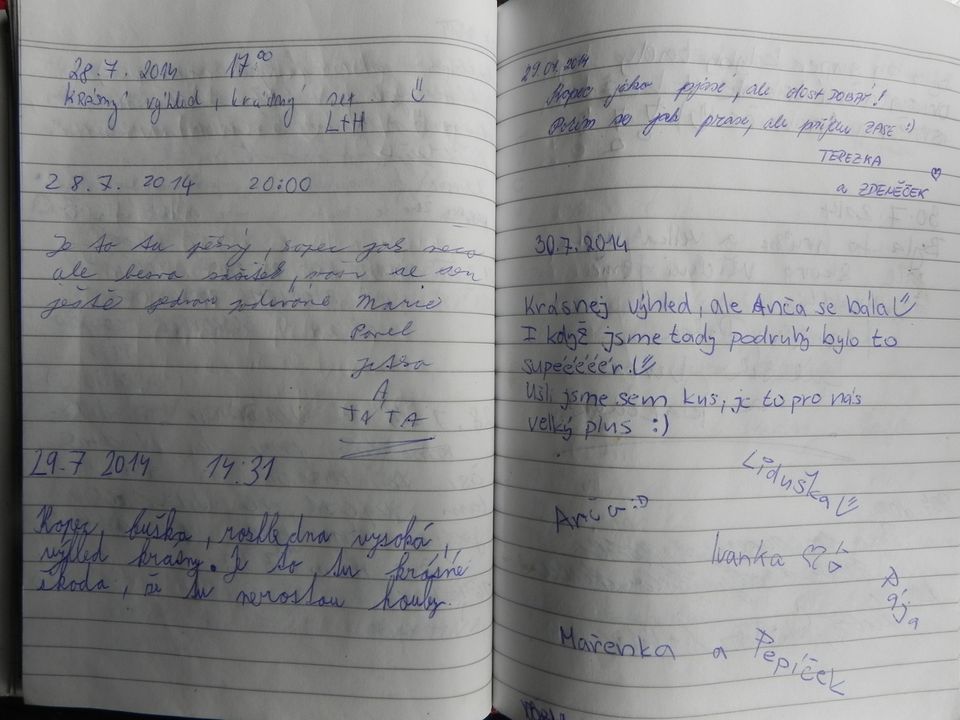 28.7. 2014 17:00
Krásný výhled, krásný
L+H
28.7. 2014 20:00
Je to tu pěkný, kopec jak něco
ale besva zážitek,
ještě jednou Marie
Pavel
A
TA TA
29.7 2014 14:31
Kopec, buška, rozhledna vysoká,
výhled krásny. Je to tu krásné
škoda, že tu nerostou houby.
29.07.2014
Kopec jako, ale dost DOBRÝ!
Potím se jak prase, ale přijdu ZASE :)
TEREZKA
a ZDENĚČEK
30.7. 2014
Krásnej výhled, ale Anča se bála
I když jsme tady podruhý bylo to
supéééééér.
Ušli jsme sem kus, je to pro nás
velký plus :)
Liduška
Anča :D
Ivanka
Ája
Mařenka a Pepíček